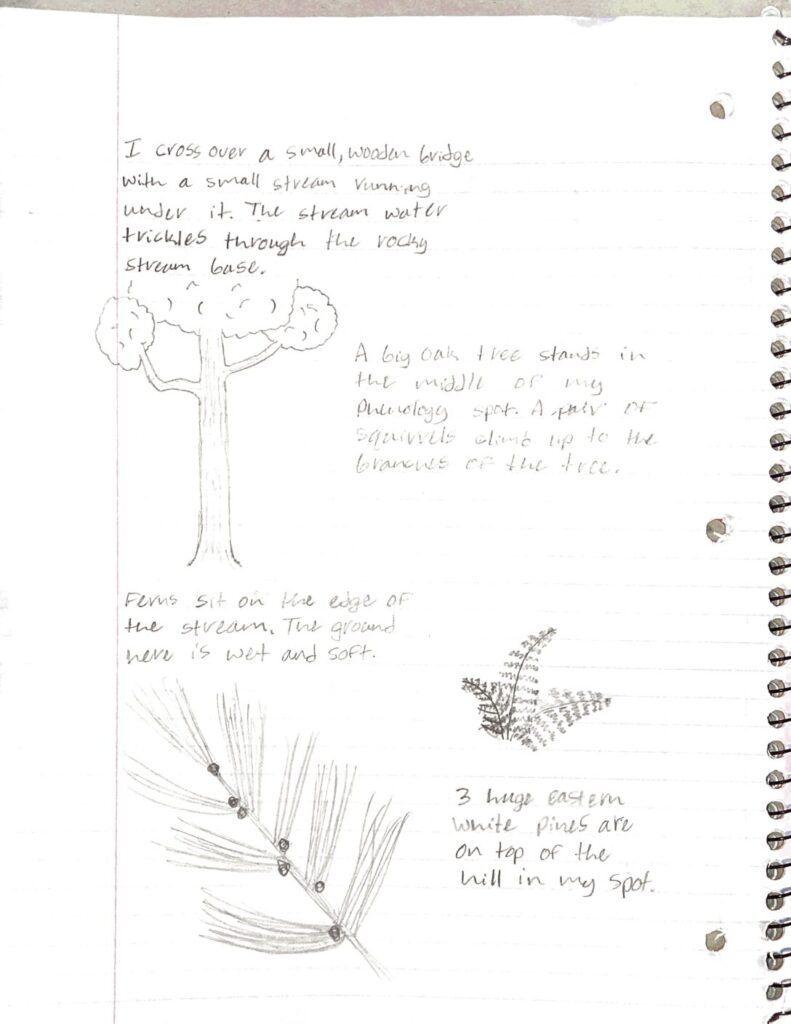 I cross over a small, wooden bridge
with a small stream running
under it. The stream water
trickles through the rocky
stream base.
A big oak tree stands in
the middle of my
Phenology spot. A pair of
squirrels climb up to the
branches of the tree.
Ferns sit on the edge of
the stream. The ground
here is wet and soft.
3 huge eastern
white pines are
on top of the
hill in my spot.